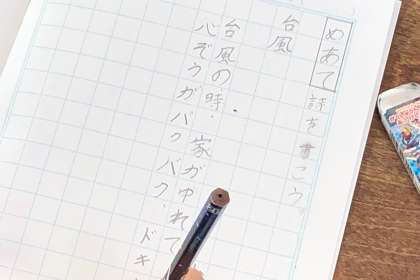 めあて 詩を書こう
台風
台風の時、家がゆれて
心ぞうがバクバク、ドキ